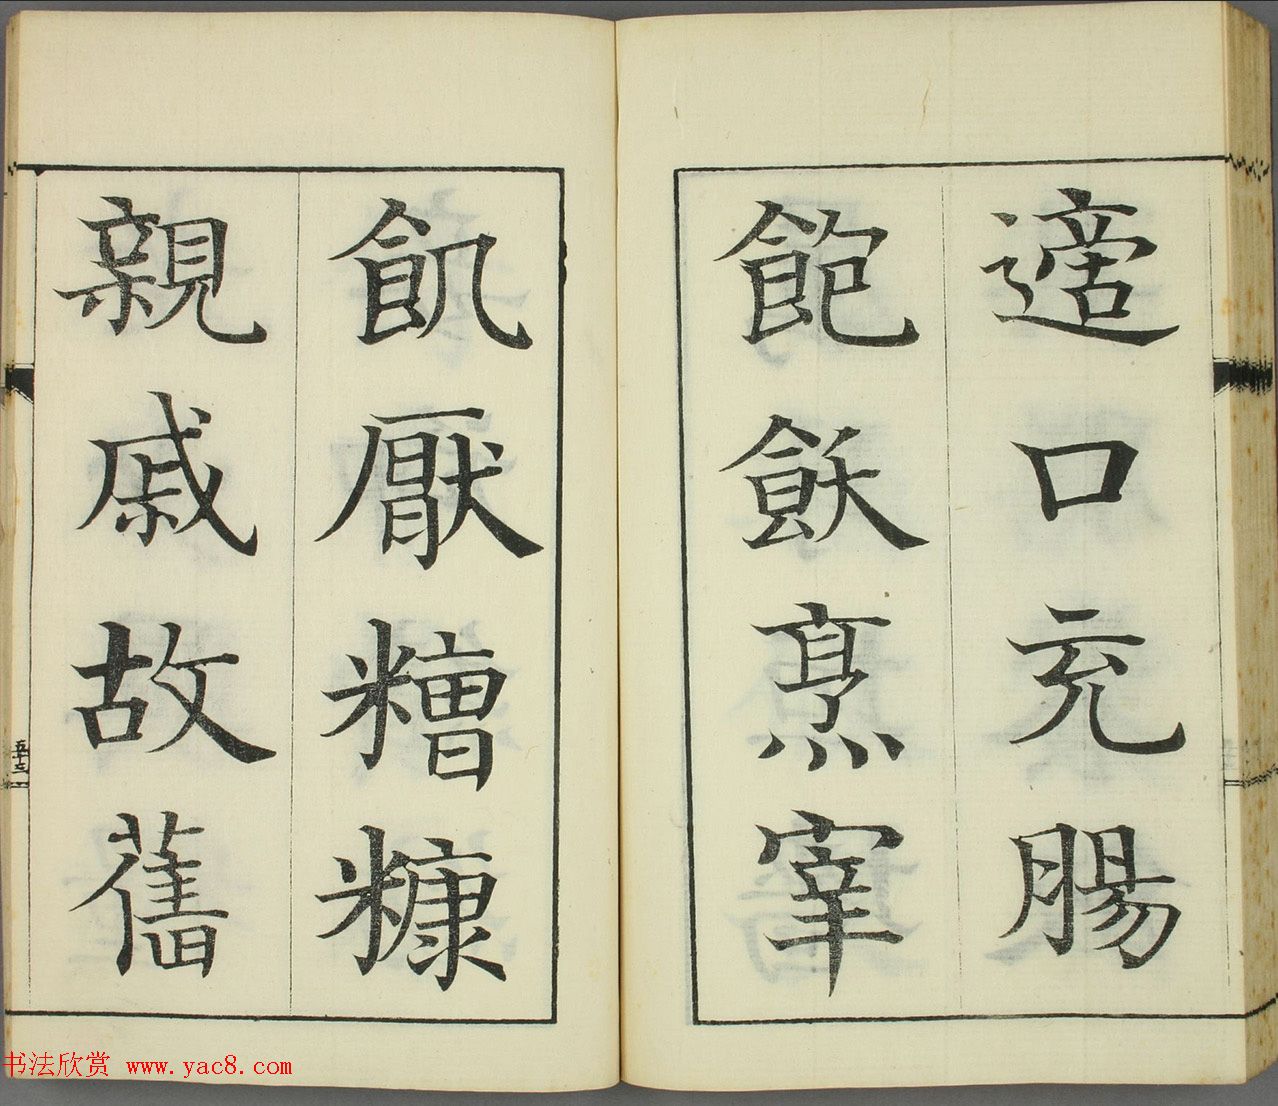 適口充腸
飽飫烹宰
飢厭糟糠
親戚故舊
五十三
书法欣赏 www.yac8.com